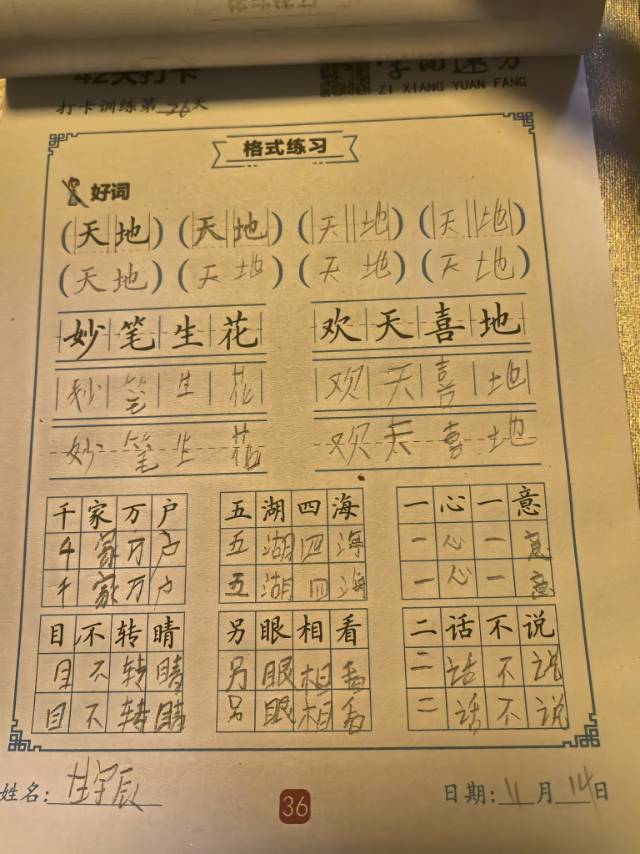 42天打卡
ZI XIANG YUAN FANG
打卡训练第 26 天
格式练习
好词
(天地) (天地) (天地) (天地)
(天地) (天地) (天地) (天地)
妙笔生花 欢天喜地
妙笔生花 欢天喜地
妙笔生花 欢天喜地
千家万户 五湖四海 一心一意
千家万户 五湖四海 一心一意
千家万户 五湖四海 一心一意
目不转睛 另眼相看 二话不说
目不转睛 另眼相看 二话不说
目不转睛 另眼相看 二话不说
姓名: 宇辰 36 日期: 11 月 14 日